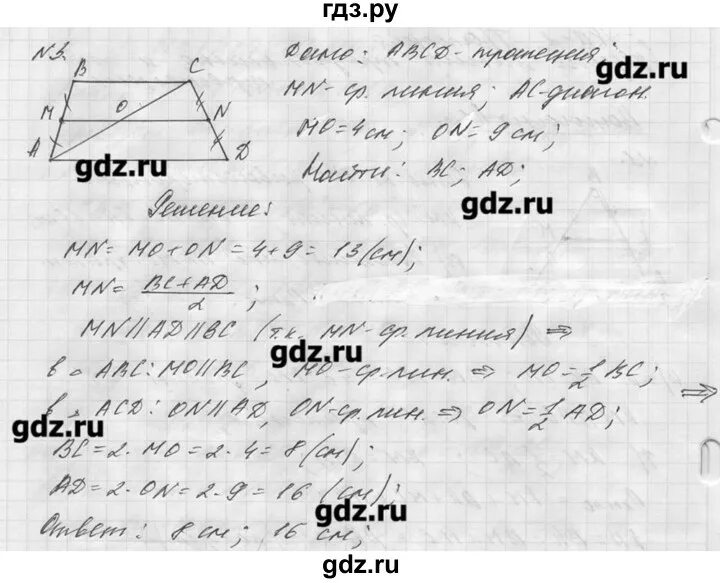 гдз.ру
N3.
B C
M O N
A D
Дано: ABCD - трапеция;
MN - ср. линия; AC - диагон.
MO = 4 см; ON = 9 см;
Найти: BC; AD;
gdz.ru
gdz.ru
gdz.ru
Решение:
MN = MO + ON = 4 + 9 = 13 (см);
MN = BC + AD / 2 ;
MN || AD || BC (т.к. MN - ср. линия) ⇒
gdz.ru
в △ ABC: MO || BC, MO - ср. лин. ⇒ MO = 1/2 BC; ⇒
в △ ACD: ON || AD, ON - ср. лин. ⇒ ON = 1/2 AD;
gdz.ru
BC = 2 · MO = 2 · 4 = 8 (см);
AD = 2 · ON = 2 · 9 = 16 (см);
gdz.ru
Ответ: 8 см; 16 см;
gdz.ru